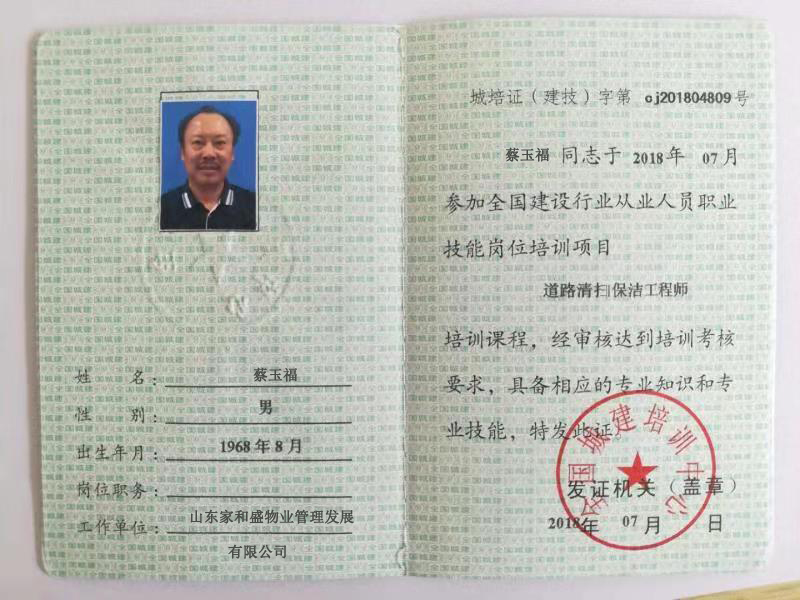 姓名：蔡玉福
性别：男
出生年月：1968年8月
岗位职务：
工作单位：山东家和盛物业管理发展
有限公司
城培证（建技）字第 cj201804809号
蔡玉福 同志于 2018年 07月
参加全国建设行业从业人员职业
技能岗位培训项目
道路清扫保洁工程师
培训课程，经审核达到培训考核
要求，具备相应的专业知识和专
业技能，特发此证。
全国城建培训中心
发证机关（盖章）
2018年 07月 日